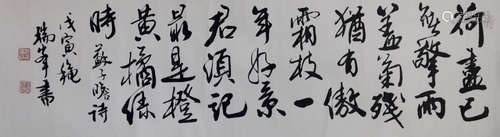 荷盡已
無擎雨
蓋菊殘
猶有傲
霜枝一
年好景
君須記
最是橙
黃橘綠
時 蘇子瞻詩
戊寅
瑞峯書